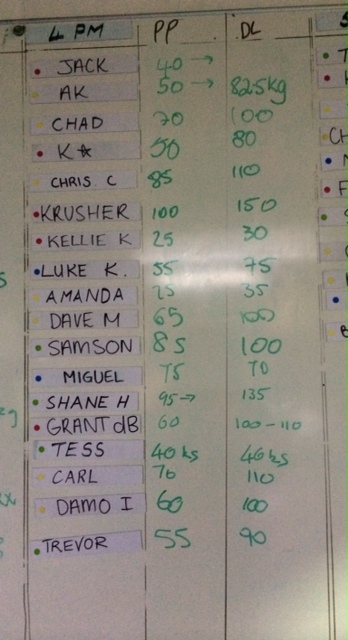 4 PM PP DL S
JACK 40 →
AK 50 → 82.5kg
CHAD 70 100
K☆ 50 80
CHRIS C 85 110
KRUSHER 100 150
KELLIE K 25 30
LUKE K. 55 75
AMANDA 25 35
DAVE M 65 100
SAMSON 85 100
MIGUEL 75 70
SHANE H 95 → 135
GRANT dB 60 100-110
TESS 40 ks 46 ks
CARL 70 110
DAMO I 60 100
TREVOR 55 90